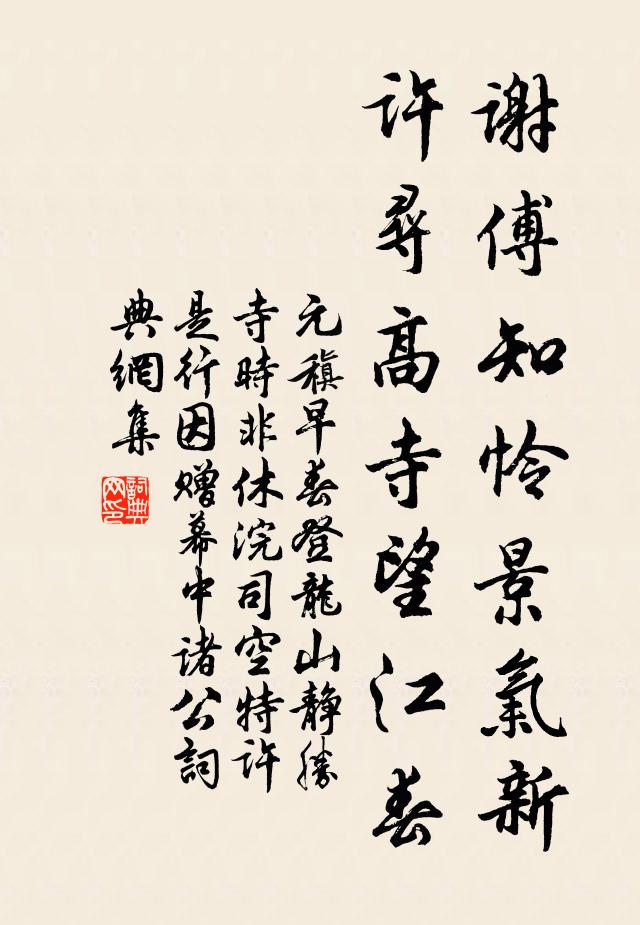 謝傅知怜景氣新
許尋高寺望江春
元稹早春登龍山靜勝
寺時非休浣司空特許
是行因赠幕中諸公詞
典網集
詞典网印